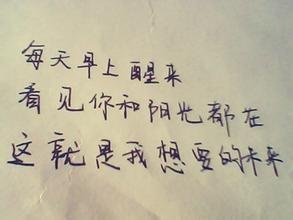 每天早上醒来
看见你和阳光都在
这就是我想要的未来